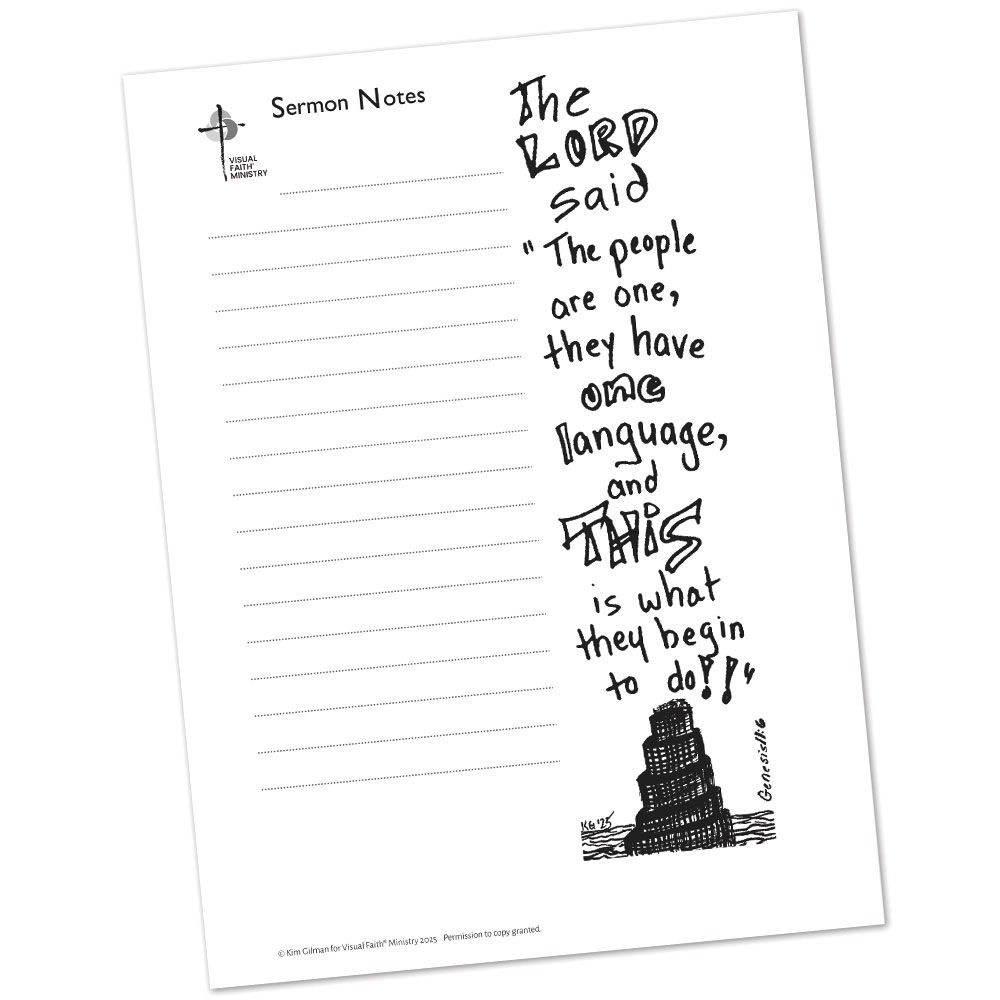 Sermon Notes
VISUAL
FAITH®
MINISTRY
The
LORD
said
"The people
are one,
they have
one
language,
and
THIS
is what
they begin
to do!!"
Genesis 11:6
KG '25
© Kim Gilman for Visual Faith® Ministry 2025 Permission to copy granted.